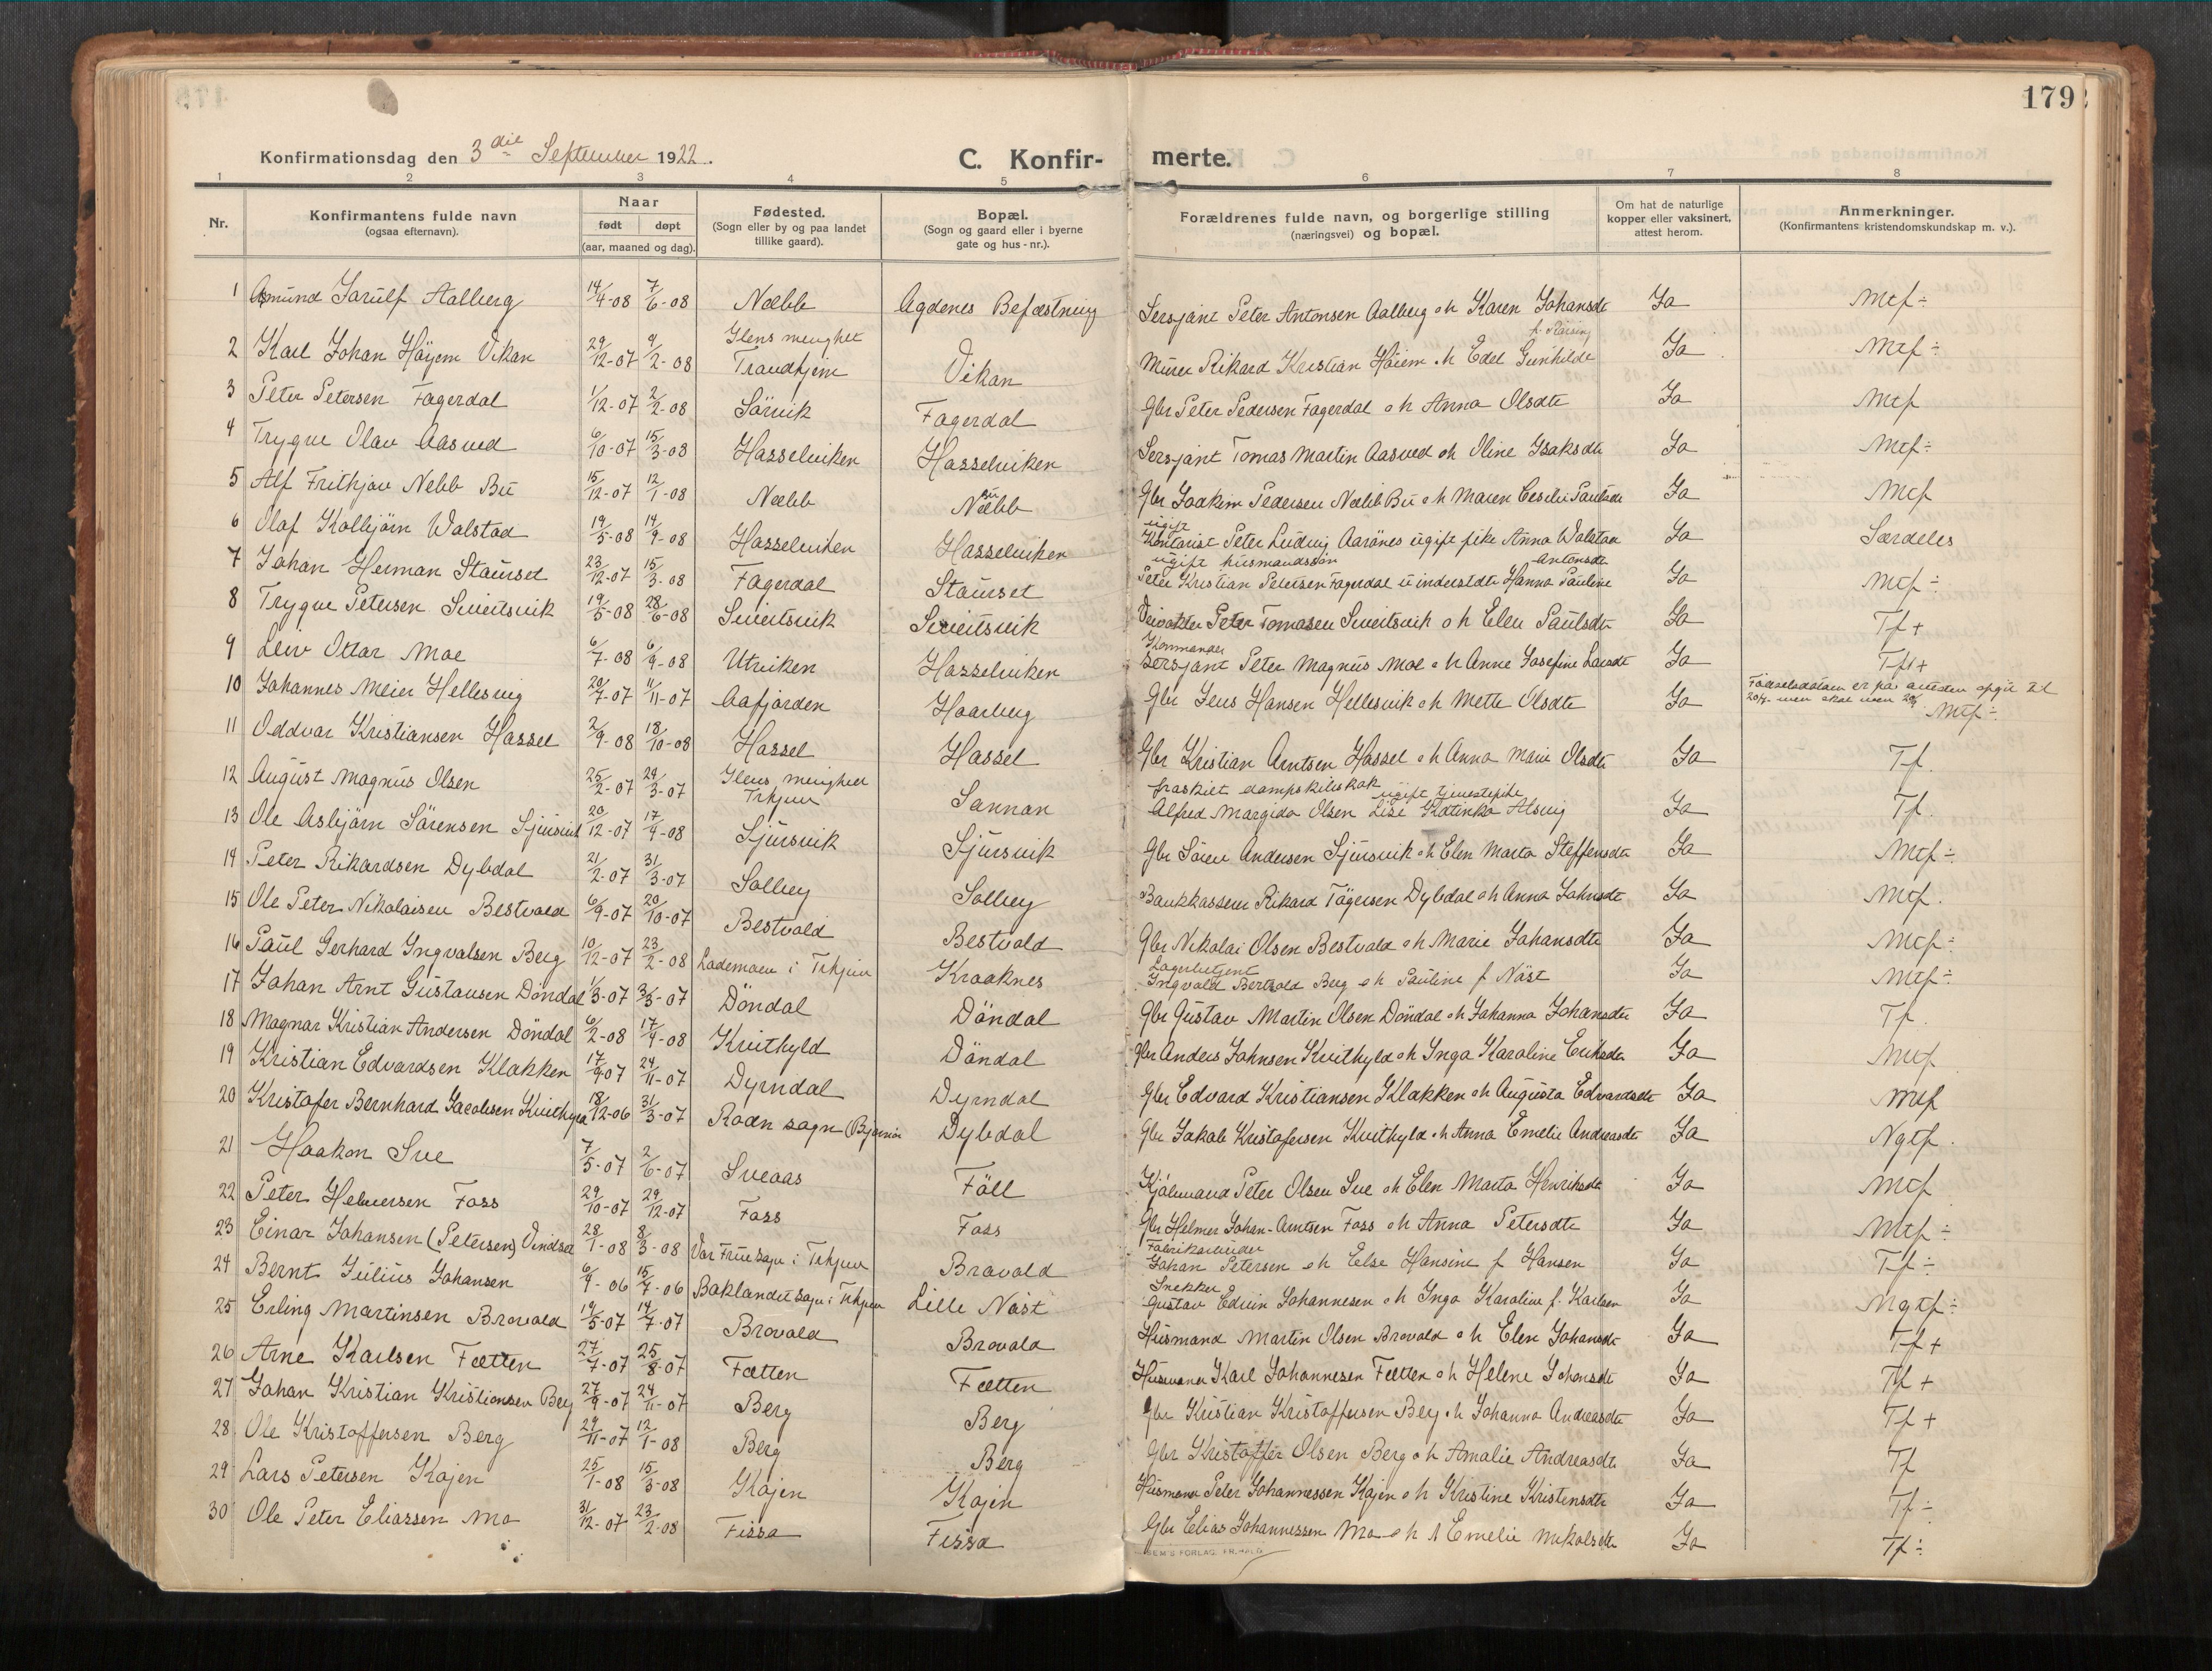 179
Konfirmationsdag den 3die September 1922.
C. Konfir- merte.
1 2 3 4 5 6 7 8
Nr. Konfirmantens fulde navn (ogsaa efternavn). Naar født døpt (aar, maaned og dag). Fødested. (Sogn eller by og paa landet tillike gaard). Bopæl. (Sogn og gaard eller i byerne gate og hus-nr.). Forældrenes fulde navn, og borgerlige stilling (næringsvei) og bopæl. Om hat de naturlige kopper eller vaksinert, attest herom. Anmerkninger. (Konfirmantens kristendomskundskap m. v.).
1 Asmund Sarulf Aalberg 14/4-08 7/6-08 Næbb Agdenes Befæstning Sersjant Peter Antonsen Aalberg oh Karen Johansdt Ja Mtf÷
2 Karl Johan Höyem Vikan 29/12-07 9/2-08 Ilens menighet Trondhjem Vikan Murer Rikard Kristian Höiem oh Edel Gunhilde Ja Mtf÷
3 Peter Petersen Fagerdal 1/12-07 2/2-08 Sörvik Fagerdal Gbr Peter Pedersen Fagerdal oh Anna Olsdtr Ja Mtf
4 Trygve Olav Aasved 6/10-07 15/3-08 Hasselviken Hasselviken Sersjant Tomas Martin Aasved oh Oline Isaksdtr Ja Mtf÷
5 Alf Frithjov Nebb Bü 15/12-07 12/1-08 Næbb Næbb bü Gbr Joakim Pedersen Næbb Bü oh Maren Cecilie Paulsdtr Ja Mtf
6 Olaf Kolbjörn Walstad 19/5-08 14/9-08 Hasselviken Hasselviken ugift Kontorist Peter Ludvig Aarönes ugift pike Anna Walstad Ja Særdeles
7 Johan Herman Staurset 23/12-07 15/3-08 Fagerdal Staurset ugift husmandssön Peter Kristian Petersen Fagerdal Hanna Pauline Antonsdtr Ja Mtf÷
8 Trygve Petersen Sveitsvik 19/5-08 28/6-08 Sveitsvik Sveitsvik Veivokter Peter Tomasen Sveitsvik oh Elen Paulsdtr Ja Tf+
9 Leiv Ottar Moe 6/7-08 6/9-08 Utviken Hasselviken Kommander sersjant Peter Magnus Moe oh Anne Josefine Ja Tf+
10 Johannes Meier Hellesvig 20/7-07 11/11-07 Aafjorden Haarberg Gbr Jens Hansen Hellesvik oh Mette Olsdtr Ja Födselsdatoen er paa attesten opgit til men skal være Mtf÷
11 Oddvar Kristiansen Hassel 2/9-08 18/10-08 Hassel Hassel Gbr Kristian Arntsen Hassel oh Anna Marie Olsdtr Ja Tf.
12 August Magnus Olsen 25/2-07 29/3-07 Ilens menighet Trhjem Sannan fraskilt dampskibskok Alfred Margido Olsen ugift tjenestepike Lise Katinka Alsvig Ja Tf.
13 Ole Asbjörn Sörensen Sjursvik 20/12-07 17/4-08 Sjursvik Sjursvik Gbr Sören Andersen Sjursvik oh Elen Marta Steffensdtr Ja Mtf÷
14 Peter Rikardsen Dybdal 21/2-07 31/3-07 Solbey Solbey Bankkasserer Rikard Tögersen Dybdal oh Anna Johnsdtr Ja Mtf.
15 Ole Peter Nikolaisen Bestvold 6/9-07 20/10-07 Bestvold Bestvold Gbr Nikolai Olsen Bestvold oh Marie Johansdtr Ja Mtf÷
16 Paul Gerhard Ingvalsen Berg 10/12-07 23/2-08 Lademoen i Trhjem Kraaknes Lagerbetjent Ingvald Bertold Berg oh Pauline f Näst Ja Mtf÷
17 Johan Arnt Gustavsen Döndal 1/3-07 31/3-07 Döndal Döndal Gbr Gustav Martin Olsen Döndal oh Johanna Johansdtr Ja Tf.
18 Magnar Kristian Andersen Döndal 6/2-08 17/4-08 Kvithyld Döndal Gbr Anders Johnsen Kvithyld oh Inga Karoline Eriksdtr Ja Mtf
19 Kristian Edvardsen Klakken 17/9-07 24/11-07 Dyrndal Dyrndal Gbr Edvard Kristiansen Klakken oh Augusta Edvardsdtr Ja Mtf
20 Kristofer Bernhard Jacobsen Kvithyld 18/12-06 31/3-07 Roan sogn (Björnör Dybdal Gbr Jakob Kristofersen Kvithyld oh Anna Emelie Andreasdtr Ja Ngtf.
21 Haakon Sve 7/5-07 2/6-07 Sveaas Föll Kjölmand Peter Olsen Sve oh Elen Marta Henriksdtr Ja Mtf
22 Peter Helmersen Foss 29/10-07 29/12-07 Foss Foss Gbr Helmer Johan Arntsen Foss oh Anna Petersdtr Ja Mtf÷
23 Einar Johansen (Petersen) 28/1-08 8/3-08 Vor Frue sogn i Trhjem Bravold Fabrikarbeider Johan Petersen oh Else Hansine f Hansen Ja Tf÷
24 Bernt Julius Johansen 6/4-06 15/7-06 Baklandet sogn i Trhjem Lille Näst Snekker Gustav Edvin Johannesen oh Inga Karoline f. Karlsen Ja Mgtf÷
25 Erling Martinsen Brovold 19/5-07 14/7-07 Brovold Brovold Husmand Martin Olsen Brovold oh Elen Johansdtr Ja Tf+
26 Arne Karlsen Fætten 27/7-07 25/8-07 Fætten Fætten Husmand Karl Johannesen Fætten oh Helene Johansdtr Ja Tf+
27 Johan Kristian Kristiansen Berg 27/9-07 24/11-07 Berg Berg Gbr Kristian Kristoffersen Berg oh Johanna Andreasdtr Ja Tf+
28 Ole Kristoffersen Berg 29/11-07 12/1-08 Berg Berg Gbr Kristoffer Olsen Berg oh Amalie Andreasdtr Ja Tf
29 Lars Petersen Kojen 25/1-08 15/3-08 Kojen Kojen Husmand Peter Johannessen Kojen oh Kristine Kristensdtr Ja Tf÷
30 Ole Peter Eliassen Mo 31/12-07 23/2-08 Fissa Fissa Gbr Elias Johannessen Mo oh Emelie Nikolsdtr Ja Tf÷
SEM'S FORLAG, FR.HALD